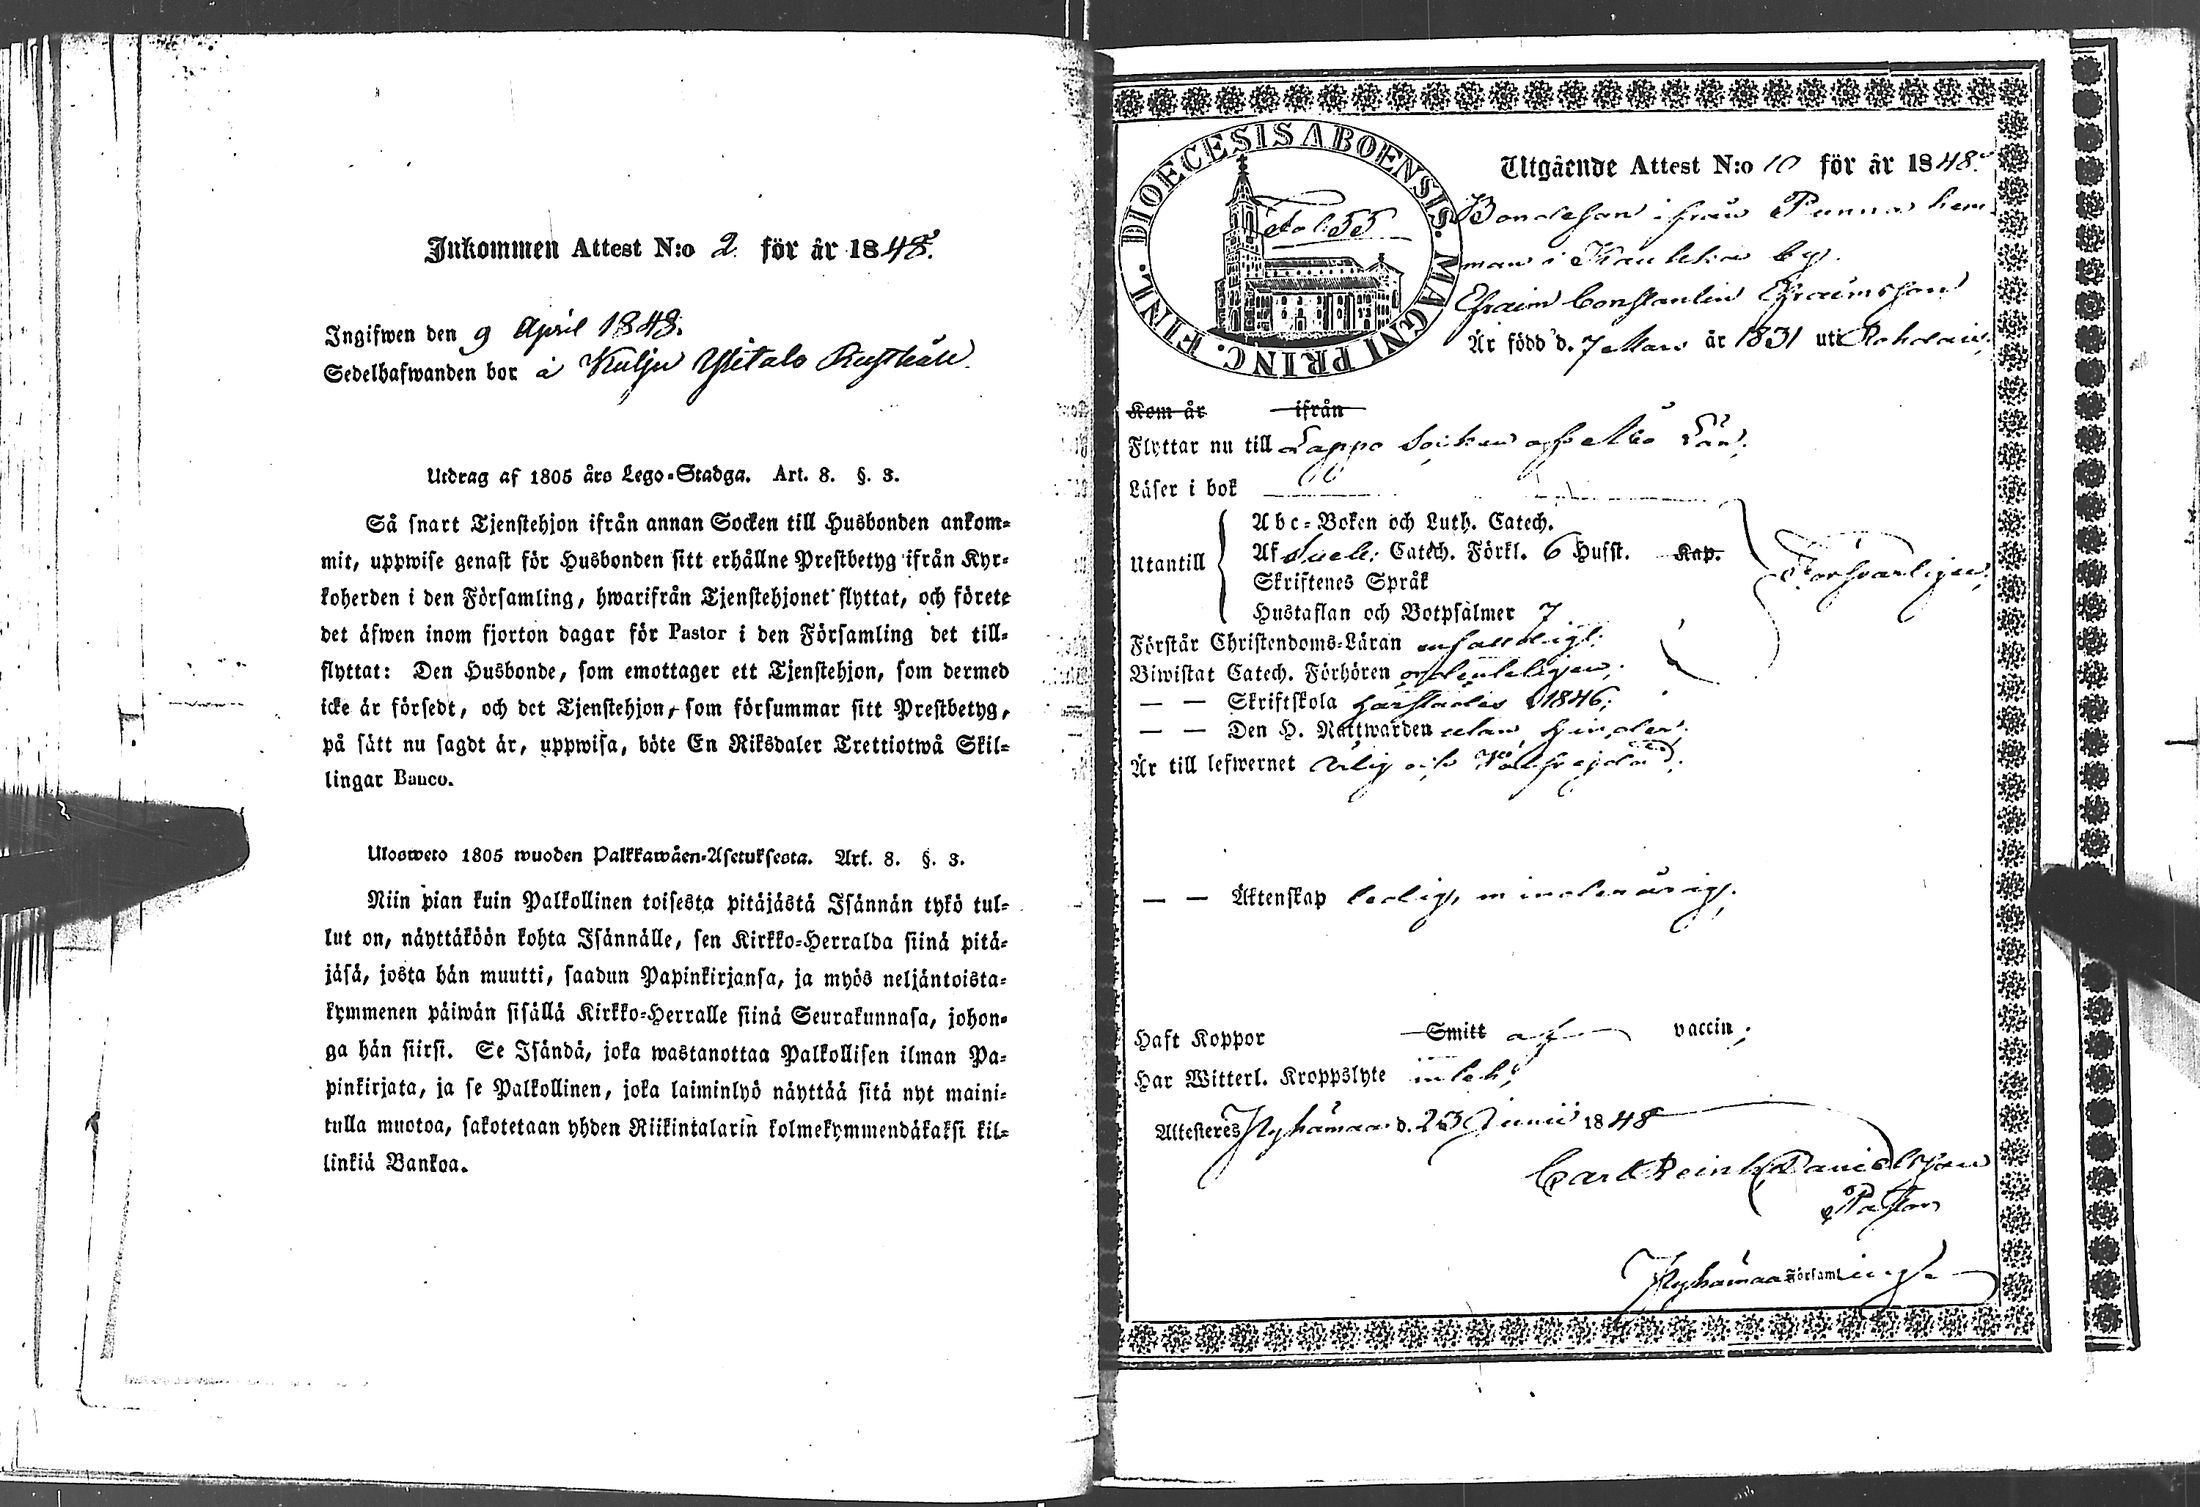 Inkommen Attest N:o 2. för år 1848.
Ingifwen den 9 April 1848.
Sedelhafwanden bor å Kulju Ylitalo Rusthåll.
Utdrag af 1805 års Lego-Stadga. Art. 8. §. 3.
Så snart Tjenstehjon ifrån annan Socken till Husbonden ankom-
mit, uppwise genast för Husbonden sitt erhållne Prestbetyg ifrån Kyr-
koherden i den Församling, hwarifrån Tjenstehjonet flyttat, och förete
det äfwen inom fjorton dagar för Pastor i den Församling det till-
flyttat: Den Husbonde, som emottager ett Tjenstehjon, som dermed
icke är försedt, och det Tjenstehjon, som försummar sitt Prestbetyg,
på sätt nu sagdt är, uppwisa, böte En Riksdaler Trettiotwå Skil-
lingar Banco.
Ulosweto 1805 wuoden Palkkawäen-Asetuksesta. Art. 8. §. 3.
Niin pian kuin Palkollinen toisesta pitäjästä Isännän tykö tul-
lut on, näyttäköön kohta Isännälle, sen Kirkko-Herralda siinä pitä-
jäsä, josta hän muutti, saadun Papinkirjansa, ja myös neljäntoista-
kymmenen päiwän sisällä Kirkko-Herralle siinä Seurakunnasa, johon-
ga hän siirsi. Se Isändä, joka wastanottaa Palkollisen ilman Pa-
pinkirjata, ja se Palkollinen, joka laiminlyö näyttää sitä nyt maini-
tulla muotoa, sakotetaan yhden Riikintalarin kolmekymmendäkaksi kil-
linkiä Bankoa.
DIOECESIS ABOENSIS. MAGNI PRINC. FINL.
Fol. 55
Utgående Attest N:o 10 för år 1848.
Bondeson ifrån Punna hem-
man i Kauleha by.
Efraim Constantin Efraimsson
Är född d. 7 Mars år 1831 uti
Kom år ifrån
Flyttar nu till Lappo Socken af Åbo Län.
Läser i bok
Utantill
Abc-Boken och Luth. Catech.
Af Sveb. Catech. Förkl. 6 Hufst. Kap.
Skriftenes Språk
Hustaflan och Botpsalmer 7
Försvarligen
Förstår Christendoms-Läran enfaldigt.
Biwistat Catech. Förhören ordenteligen;
— — Skriftskola härstädes 1846;
— — Den H. Nattwarden utan hinder;
Är till lefwernet ärlig och wälfrejdad.
— — Äktenskap ledig, minderårig.
Haft Koppor Smitt af vaccin;
Har Witterl. Kroppslyte intet;
Attesteres Pyhämaa d. 23 Junii 1848
Carl Reinh. Danielsson
Pastor
Pyhämaa Församling